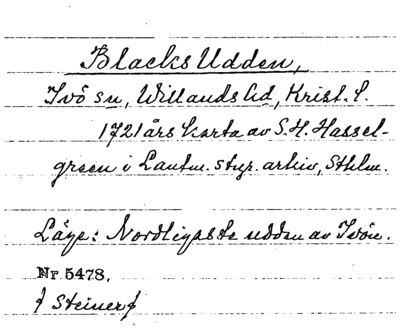 Blacks Udden,
Ivö sn, Willands hd, Krist. l.
1721 års karta av S. H. Hassel-
green i Lantm. styr. arkiv, Sthlm.
Läge: Nordligaste udden av Ivön.
Nr 5478.
f Steiner f